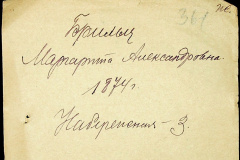 361
Бриль
Маргарита Александровна
1874 г
Набережная - 3.